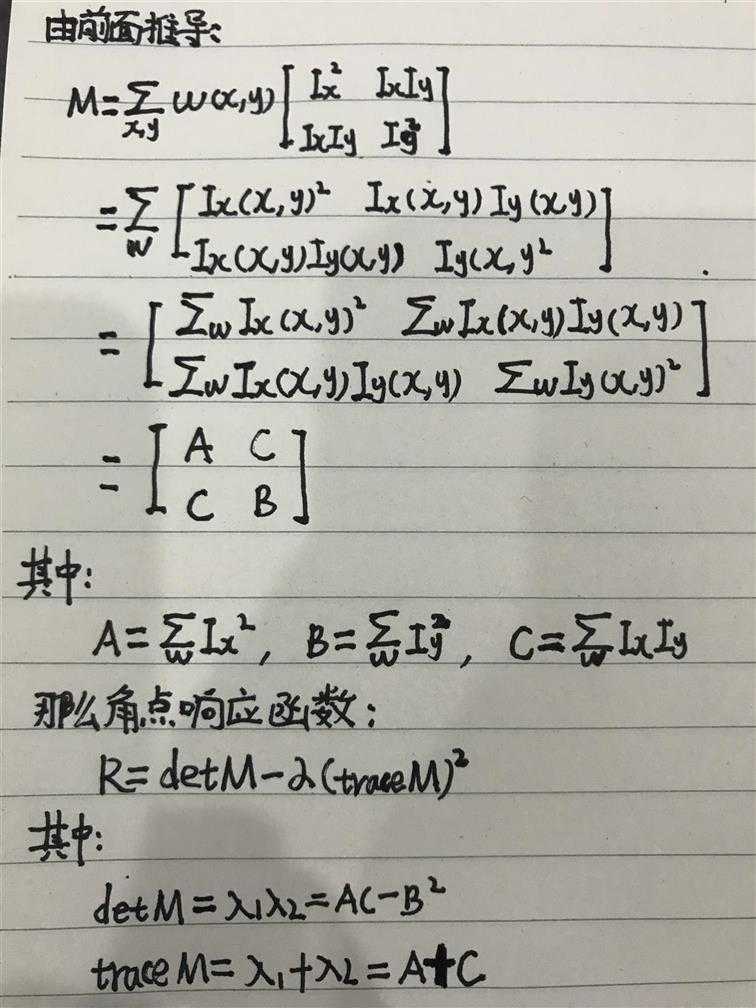 由前面推导:
M=∑_{x,y} w(x,y) [ Ix² IxIy
IxIy Iy² ]
=∑_W [ Ix(x,y)² Ix(x,y)Iy(x,y)
Ix(x,y)Iy(x,y) Iy(x,y² ]
= [ ∑w Ix(x,y)² ∑w Ix(x,y)Iy(x,y)
∑w Ix(x,y)Iy(x,y) ∑w Iy(x,y)² ]
= [ A C
C B ]
其中:
A=∑_W Ix², B=∑_W Iy², C=∑_W IxIy
那么角点响应函数:
R=detM-α(traceM)²
其中:
detM=λ1λ2=AC-B²
traceM=λ1+λ2=A+C